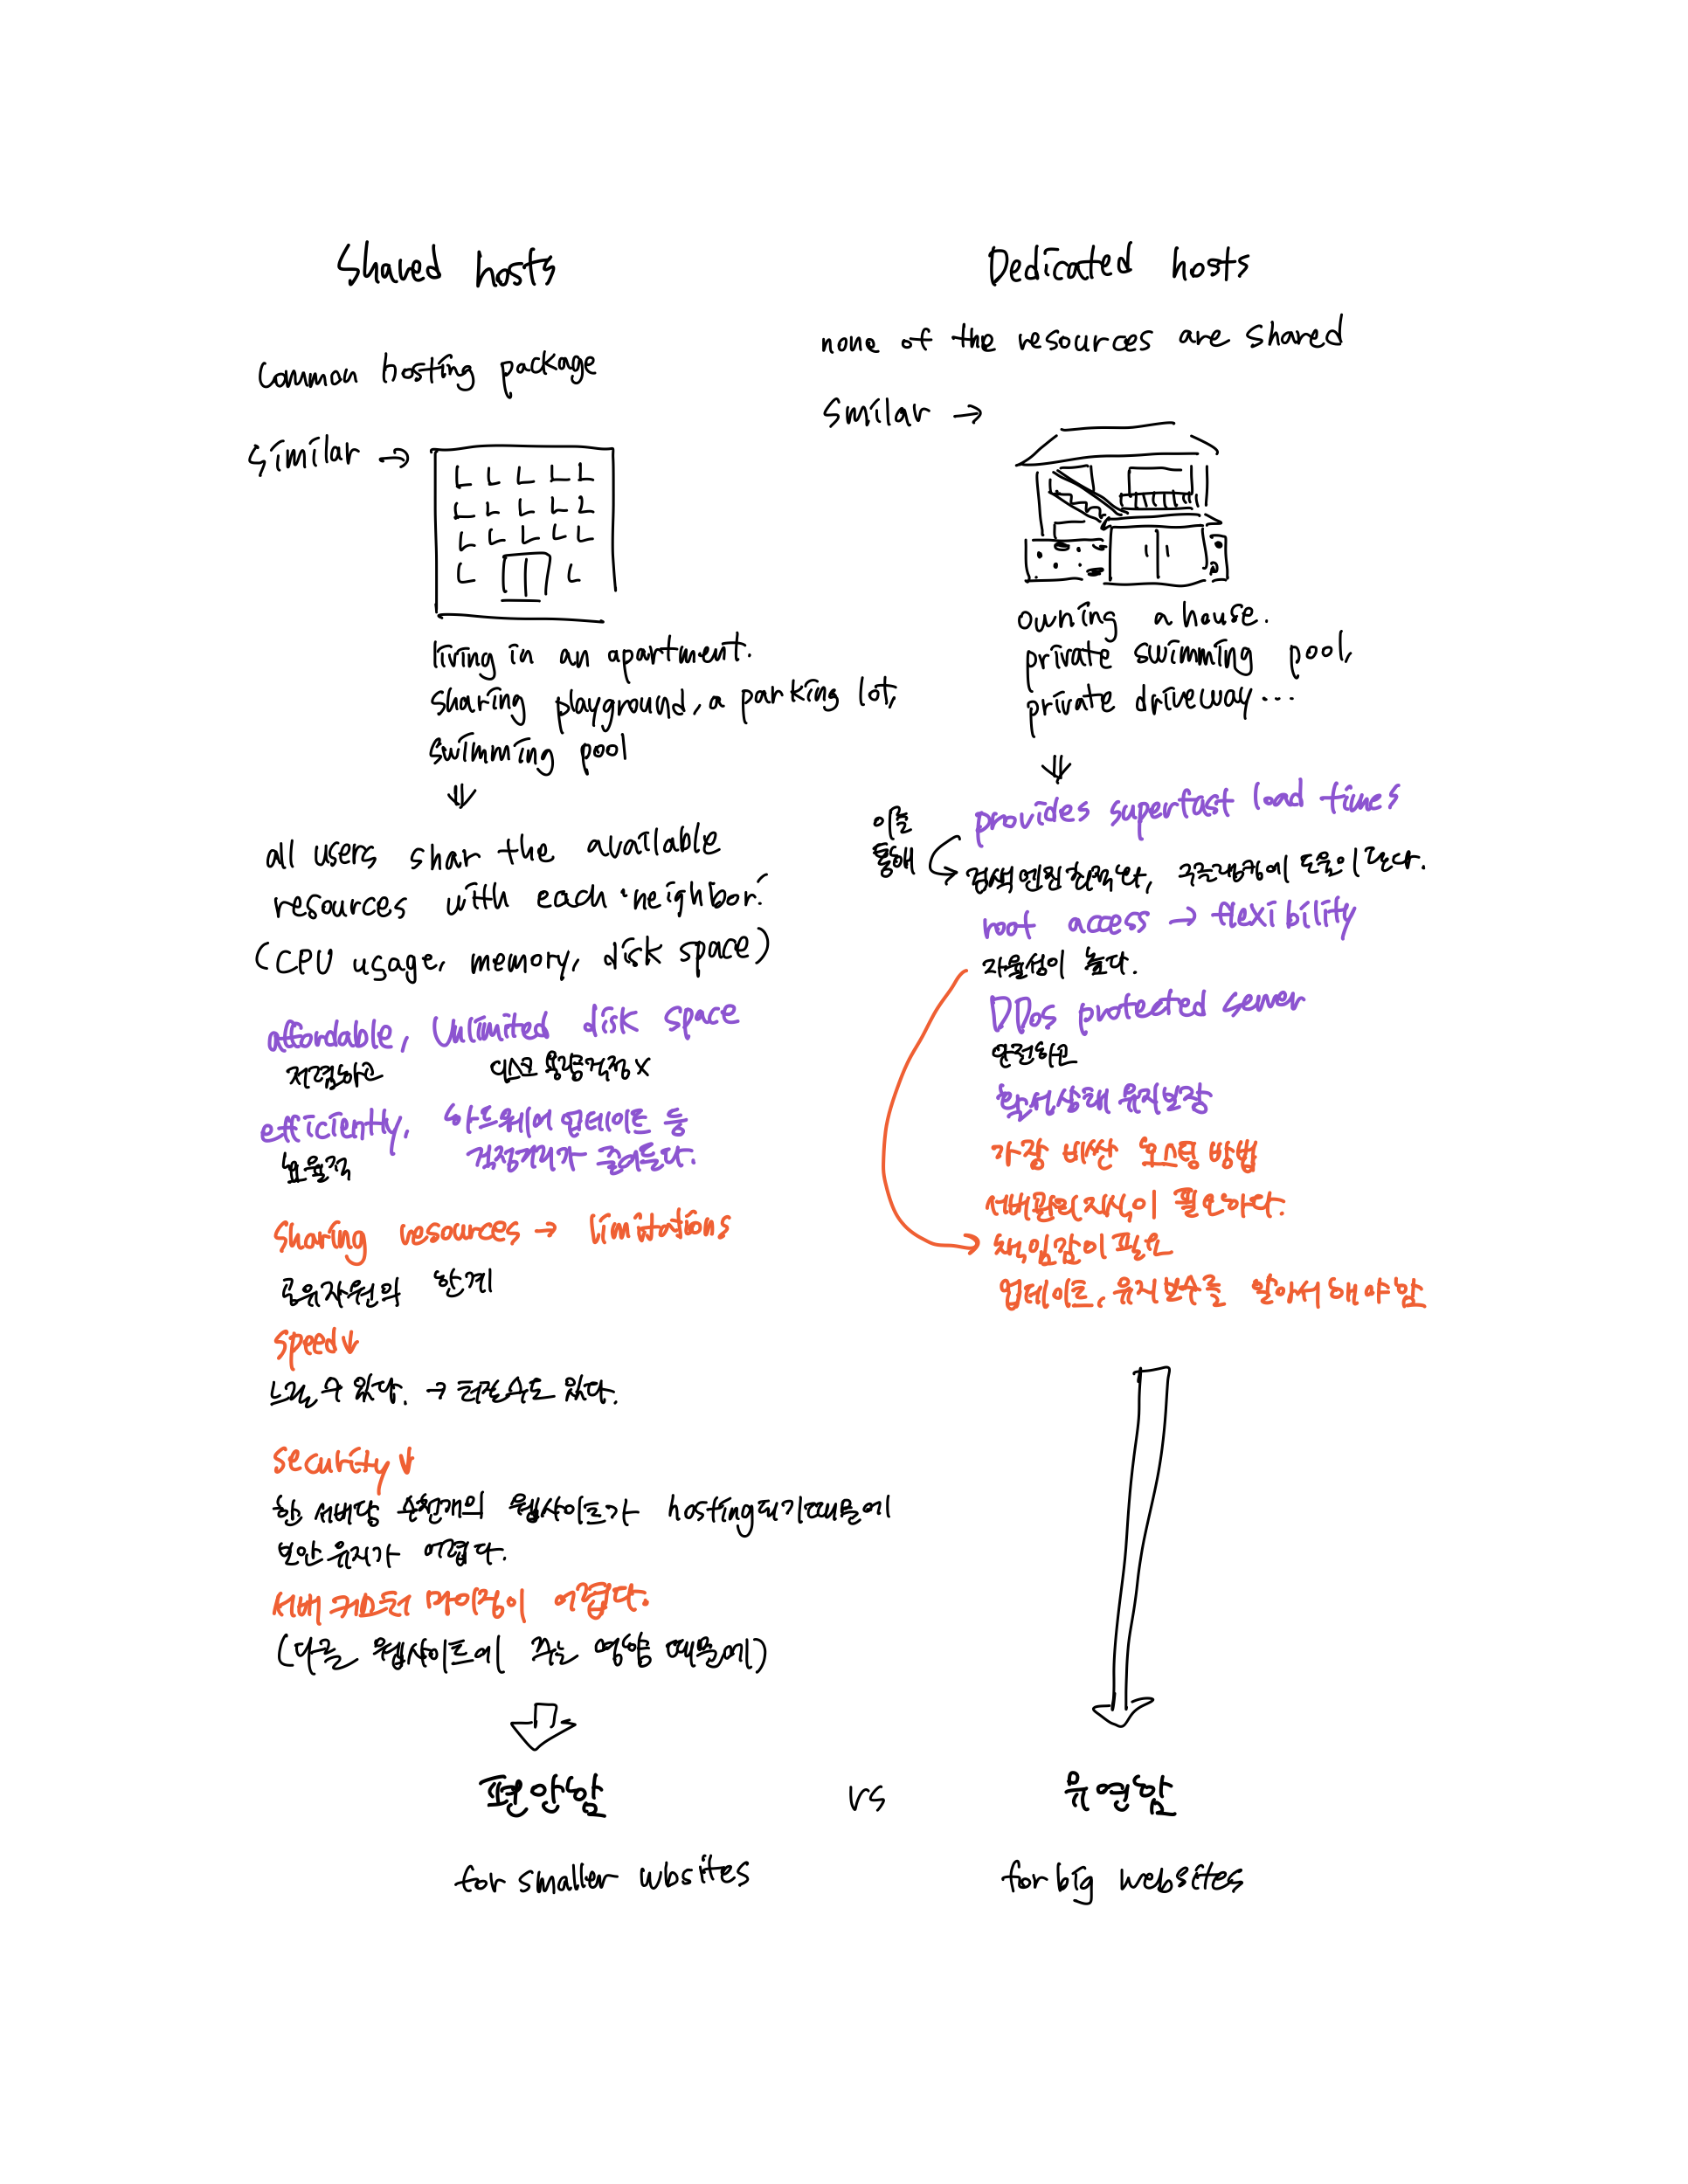 Shared hosts
Common hosting package
similar →
living in an apartment.
sharing playground, a parking lot,
swimming pool
all users shar the available
resources with each "neighbor."
(CPU usage, memory, disk space)
affordable, Unlimited disk space
저렴하고 디스크 용량 걱정 x
efficienty, 하드웨어 업데이트 등
효율적 걱정거리가 줄어든다.
Sharing resources → limitations
공유자원의 한계
speed↓
느릴 수 있다. → 터질수도 있다.
security↓
한 서버당 수천개의 웹사이트가 hosting되기때문에
보안 유지가 어렵다.
서버 커스터마이징이 어렵다.
(다른 웹사이트에 주는 영향 때문에)
편안함
for smaller wbsites
vs
Dedicated hosts
none of the resources are shared
Smilar →
owning a house.
private swimming pool,
private driveway...
provides superfast load times
이를
통해
검색엔진 최적화, 구글랭킹에 도움이 된다.
root access → flexibility
자율성이 높다.
DDos protected server
안전하고
활성상태 유지보장
가장 비싼 호스팅 방법
서버관리 지식이 필요하다.
책임감이 필요
업데이트, 유지보수를 알아서 해야 함
유연함
for big websites